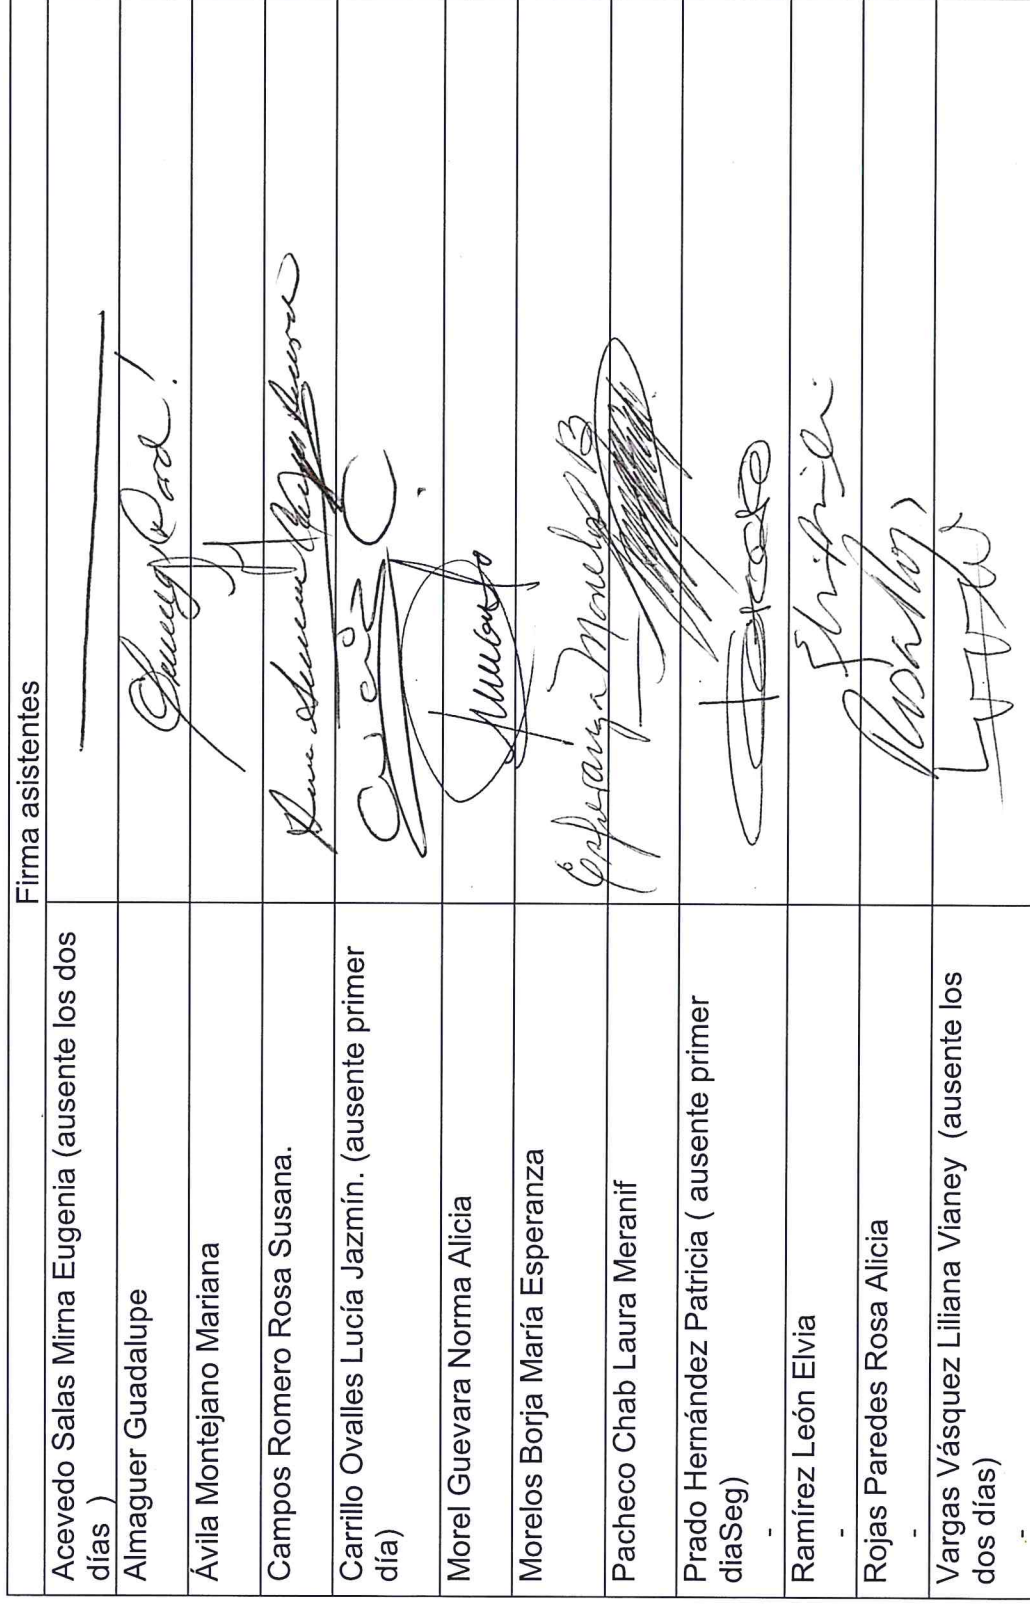 Firma asistentes
Acevedo Salas Mirna Eugenia (ausente los dos
días )
Almaguer Guadalupe
Ávila Montejano Mariana
Campos Romero Rosa Susana.
Carrillo Ovalles Lucía Jazmín. (ausente primer
día)
Morel Guevara Norma Alicia
Morelos Borja María Esperanza
Esperanza Morelos B
Pacheco Chab Laura Meranif
Prado Hernández Patricia ( ausente primer
diaSeg)
-
Ramírez León Elvia
-
Rojas Paredes Rosa Alicia
-
Vargas Vásquez Liliana Vianey (ausente los
dos días)
-